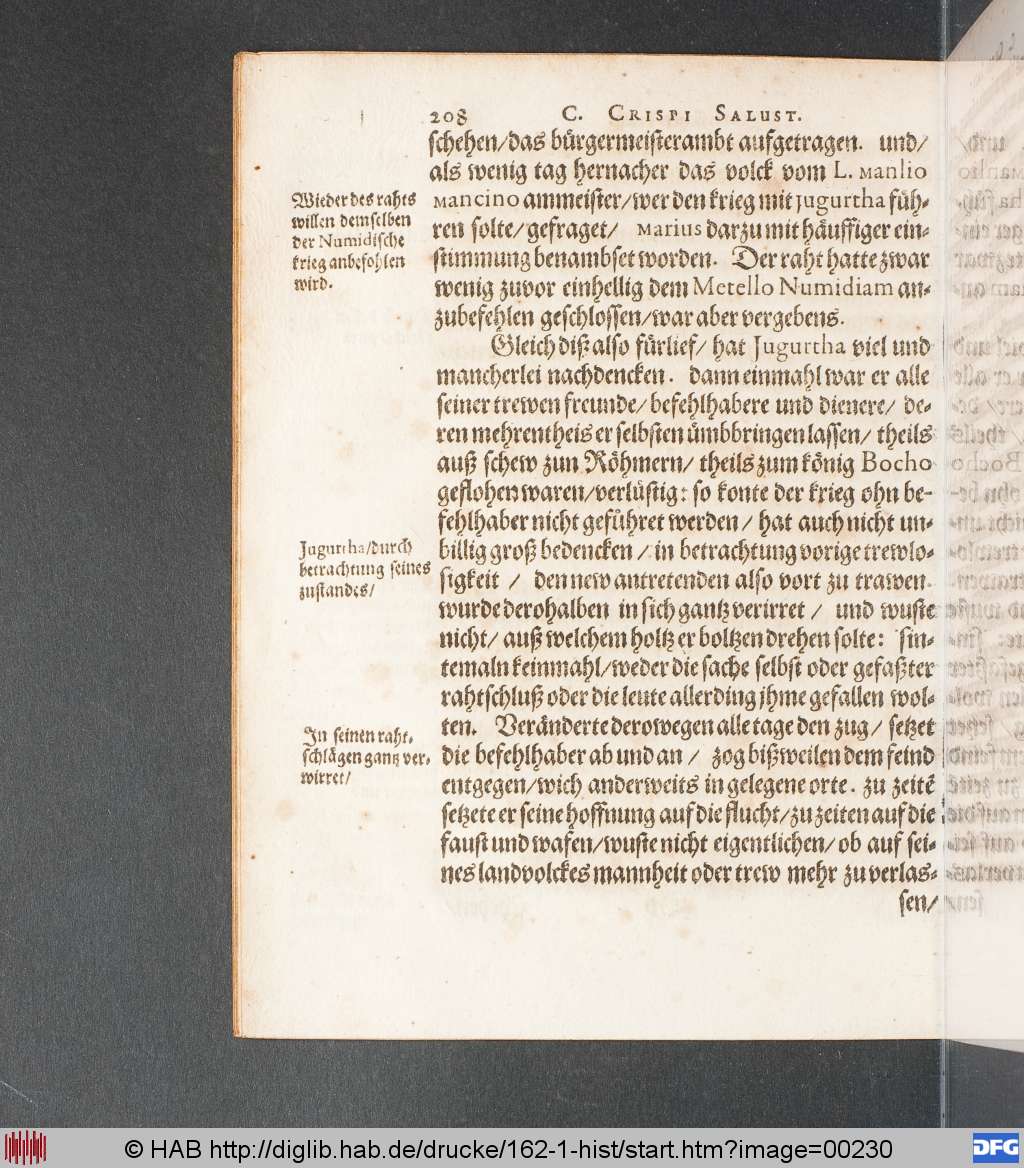 208 C. CRISPI SALUST.
schehen/das bürgermeisterambt aufgetragen. und/
als wenig tag hernacher das volck vom L. Manlio
Mancino ammeister/wer den krieg mit Jugurtha füh-
ren solte/gefraget/ Marius darzu mit häuffiger ein-
stimmung benambset worden. Der raht hatte zwar
wenig zuvor einhellig dem Metello Numidiam an-
zubefehlen geschlossen/war aber vergebens.
Wieder des rahts
willen demselben
der Numidische
krieg anbefohlen
wird.
Gleich diß also fürlief/ hat Jugurtha viel und
mancherlei nachdencken. dann einmahl war er alle
seiner trewen freunde/ befehlhabere und dienere/ de-
ren mehrentheis er selbsten ümbbringen lassen/ theils
auß schew zun Röhmern/ theils zum könig Bocho
geflohen waren/verlüstig: so konte der krieg ohn be-
fehlhaber nicht geführet werden/ hat auch nicht un-
billig groß bedencken/ in betrachtung vorige trewlo-
sigkeit / den new antretenden also vort zu trawen.
wurde derohalben in sich gantz verirret / und wuste
nicht/ auß welchem holtz er boltzen drehen solte: sin-
temaln keinmahl/weder die sache selbst oder gefaßter
rahtschluß oder die leute allerding jhme gefallen wol-
ten. Veränderte derowegen alle tage den zug/ setzet
die befehlhaber ab und an / zog bißweilen dem feind
entgegen/wich anderweits in gelegene orte. zu zeitẽ
setzete er seine hoffnung auf die flucht/zu zeiten auf die
faust und wafen/wuste nicht eigentlichen/ ob auf sei-
nes landvolckes mannheit oder trew mehr zu verlas-
sen/
Jugurtha/durch
betrachtung seines
zustandes/
In seinen raht-
schlägen gantz ver-
wirret/
© HAB http://diglib.hab.de/drucke/162-1-hist/start.htm?image=00230
DFG